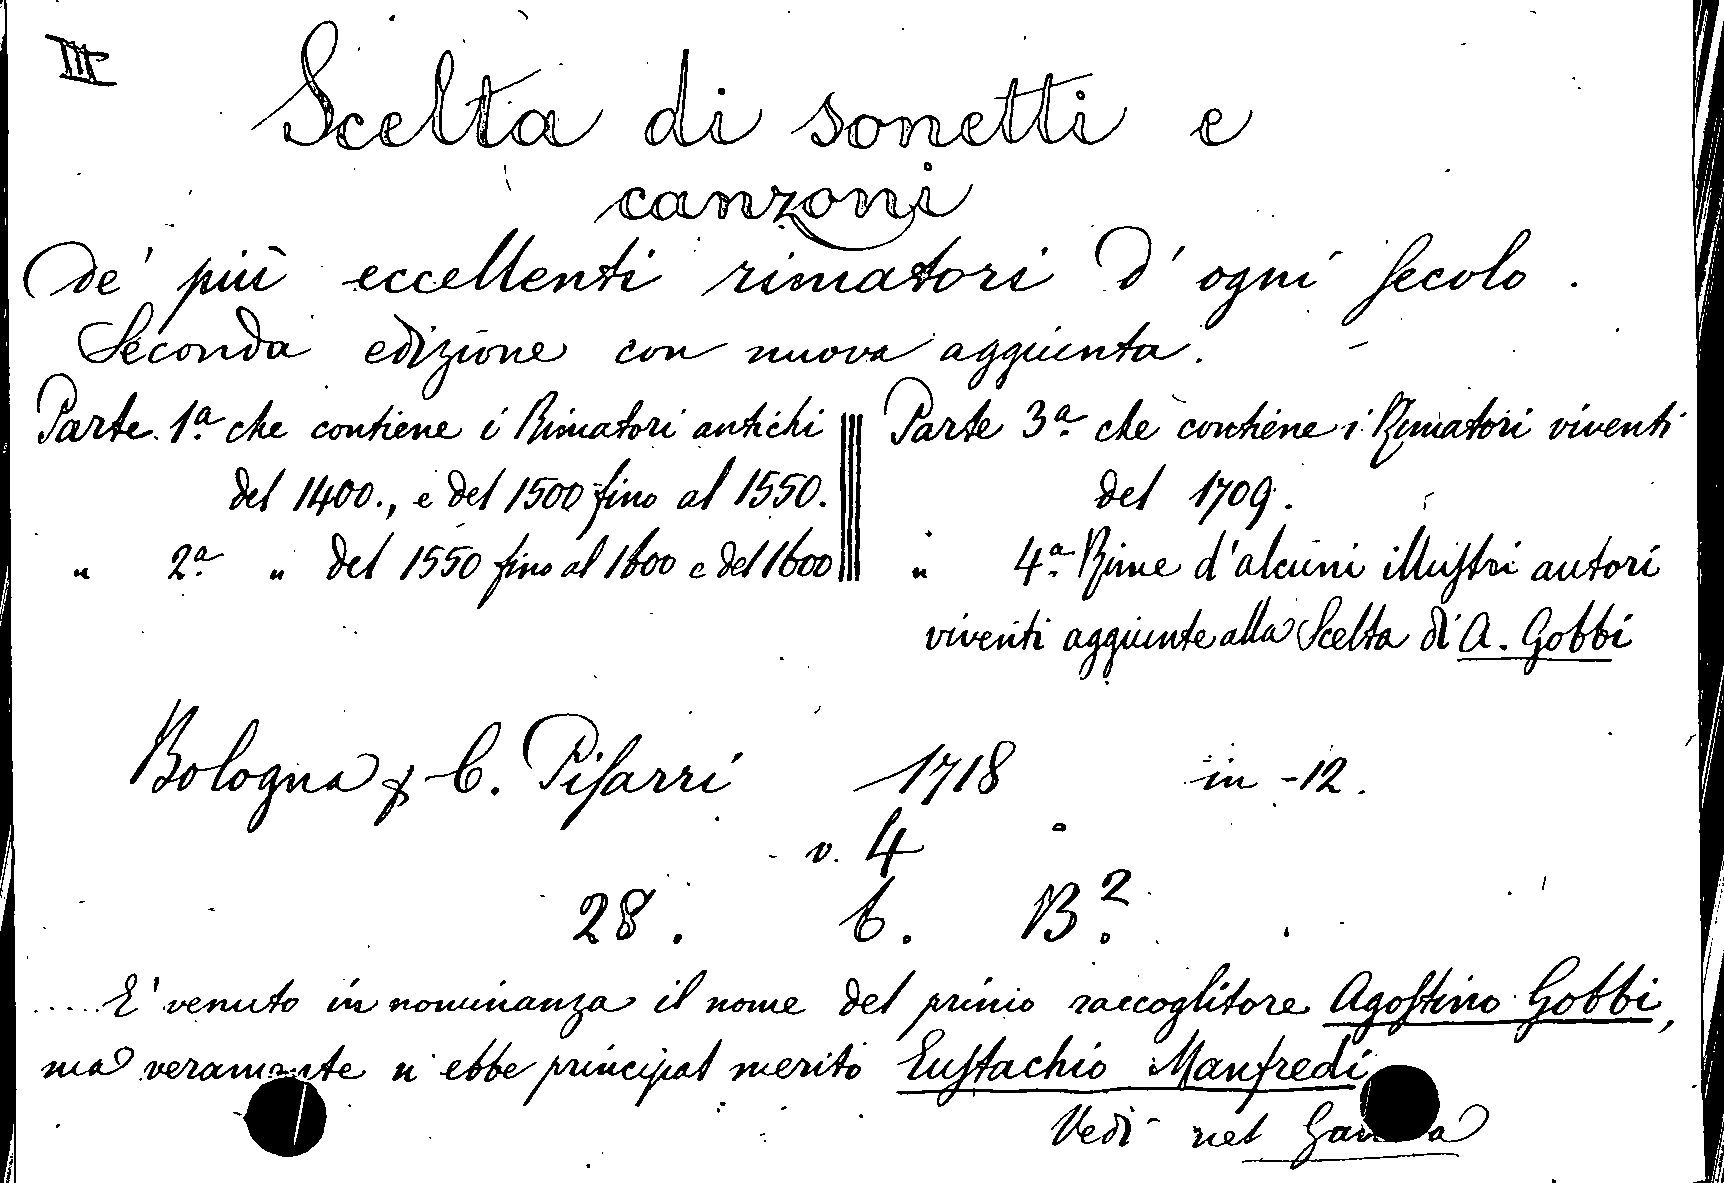 III
Scelta di sonetti e
canzoni
de' più eccellenti rimatori d' ogni secolo.
Seconda edizione con nuova aggiunta.
Parte 1a. che contiene i Rimatori antichi
del 1400., e del 1500 fino al 1550.
" 2a. " del 1550 fino al 1600 e del 1600
Parte 3a. che contiene i Rimatori viventi
del 1709.
" 4a. Rime d'alcuni illustri autori
viventi aggiunte alla Scelta di A. Gobbi
Bologna C. Pisarri 1718 in -12.
v. 4
28. 6. B2.
.... E' venuto in nominanza il nome del primo raccoglitore Agostino Gobbi,
ma veramente n' ebbe principal merito Eustachio Manfredi
Vedi nel